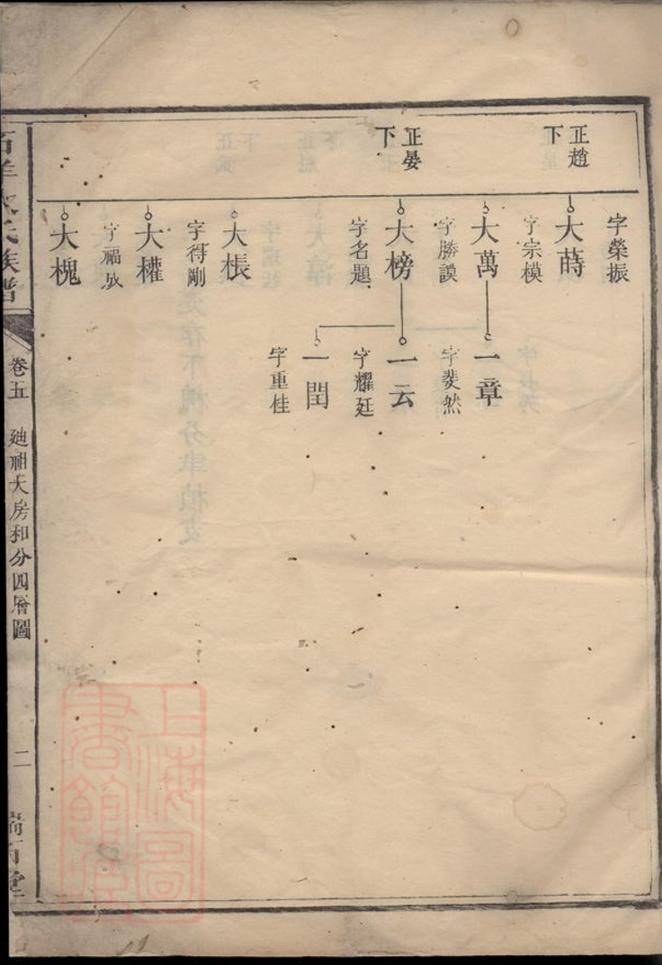 字榮振
正趙下
大蒔
字宗模
大萬
字勝謨
一章
字斐然
正晏下
大榜
字名題
一云
字耀廷
一閏
字重桂
大棖
字得剛
大權
字福攷
大槐
族譜
卷五
廸祖大房和分四層圖
二
堂
上海圖書館藏